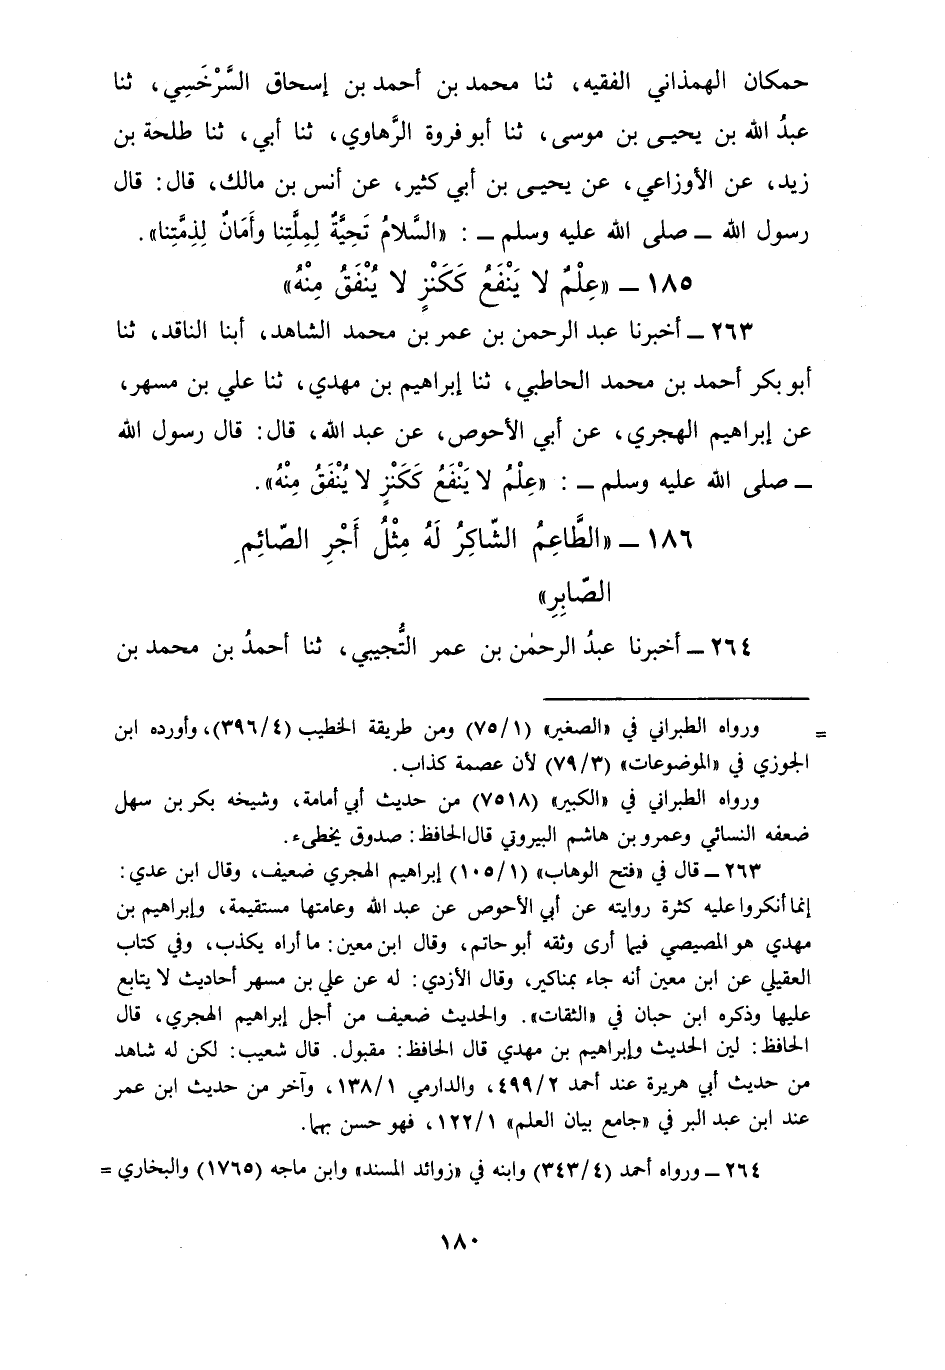 حمكان الهمذاني الفقيه، ثنا محمد بن أحمد بن إسحاق السَّرْخَسِي، ثنا
عبدُ الله بن يحيـى بن موسى، ثنا أبو فروة الرَّهاوي، ثنا أبي، ثنا طلحة بن
زيد، عن الأوزاعي، عن يحيـى بن أبي كثير، عن أنس بن مالك، قال: قال
رسول الله ــ صلى الله عليه وسلم ــ : «السَّلامُ تَحِيَّةٌ لِمِلَّتِنا وأَمَانٌ لِذِمَّتِنا».
١٨٥ ــ «عِلْمٌ لا يَنْفَعُ كَكَنْزٍ لا يُنْفَقُ مِنْهُ»
٢٦٣ ــ أخبرنا عبد الرحمن بن عمر بن محمد الشاهد، أبنا الناقد، ثنا
أبو بكر أحمد بن محمد الحاطبي، ثنا إبراهيم بن مهدي، ثنا علي بن مسهر،
عن إبراهيم الهجري، عن أبي الأحوص، عن عبد الله، قال: قال رسول الله
ــ صلى الله عليه وسلم ــ : «عِلْمُ لا يَنْفَعُ كَكَنْزٍ لا يُنْفَقُ مِنْهُ».
١٨٦ ــ «الطَّاعِمُ الشّاكِرُ لَهُ مِثْلُ أَجْرِ الصّائِمِ
الصّابِرِ»
٢٦٤ ــ أخبرنا عبدُ الرحمٰن بن عمر التُّجيبي، ثنا أحمدُ بن محمد بن
= ورواه الطبراني في «الصغير» (٧٥/١) ومن طريقة الخطيب (٣٩٦/٤)، وأورده ابن
الجوزي في «الموضوعات» (٧٩/٣) لأن عصمة كذاب.
ورواه الطبراني في «الكبير» (٧٥١٨) من حديث أبي أمامة، وشيخه بكر بن سهل
ضعفه النسائي وعمرو بن هاشم البيروتي قال الحافظ: صدوق يخطىء.
٢٦٣ ــ قال في «فتح الوهاب» (١٠٥/١) إبراهيم الهجري ضعيف، وقال ابن عدي:
إنما أنكروا عليه كثرة روايته عن أبي الأحوص عن عبد الله وعامتها مستقيمة، وإبراهيم بن
مهدي هو المصيصي فيما أرى وثقه أبو حاتم، وقال ابن معين: ما أراه يكذب، وفي كتاب
العقيلي عن ابن معين أنه جاء بمناكير، وقال الأزدي: له عن علي بن مسهر أحاديث لا يتابع
عليها وذكره ابن حبان في «الثقات». والحديث ضعيف من أجل إبراهيم الهجري، قال
الحافظ: لين الحديث وإبراهيم بن مهدي قال الحافظ: مقبول. قال شعيب: لكن له شاهد
من حديث أبي هريرة عند أحمد ٤٩٩/٢، والدارمي ١٣٨/١، وآخر من حديث ابن عمر
عند ابن عبد البر في «جامع بيان العلم» ١٢٢/١، فهو حسن بهما.
٢٦٤ ــ ورواه أحمد (٣٤٣/٤) وابنه في «زوائد المسند» وابن ماجه (١٧٦٥) والبخاري =
١٨٠